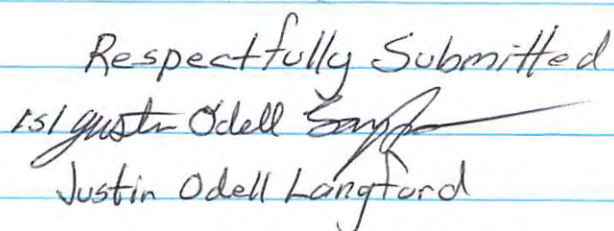 Respectfully Submitted
/s/ Justin Odell Langford
Justin Odell Langford